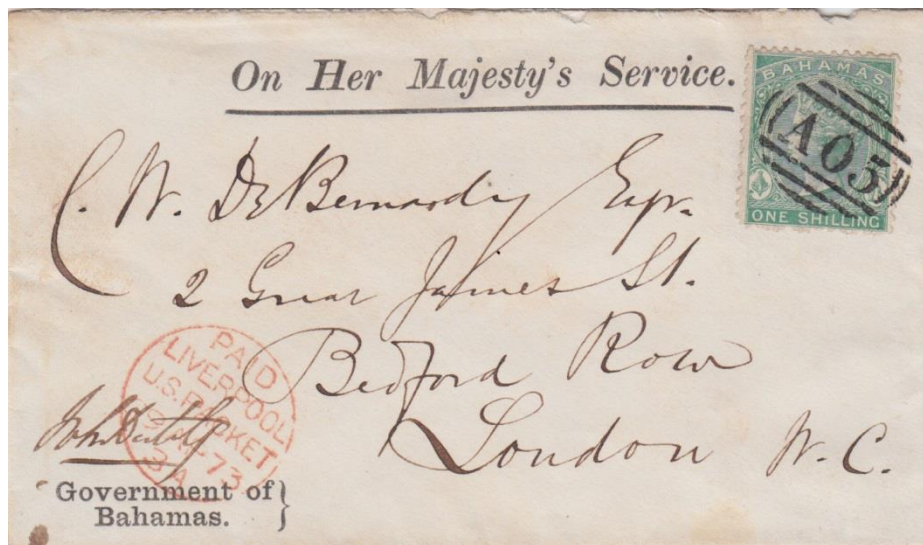 On Her Majesty's Service.
BAHAMAS
A05
ONE SHILLING
C. W. De Bernardy Esqr.
2 Great James St.
Bedford Row
London W. C.
PAID
LIVERPOOL
U.S. PACKET
73
3A
John
Government of
Bahamas.